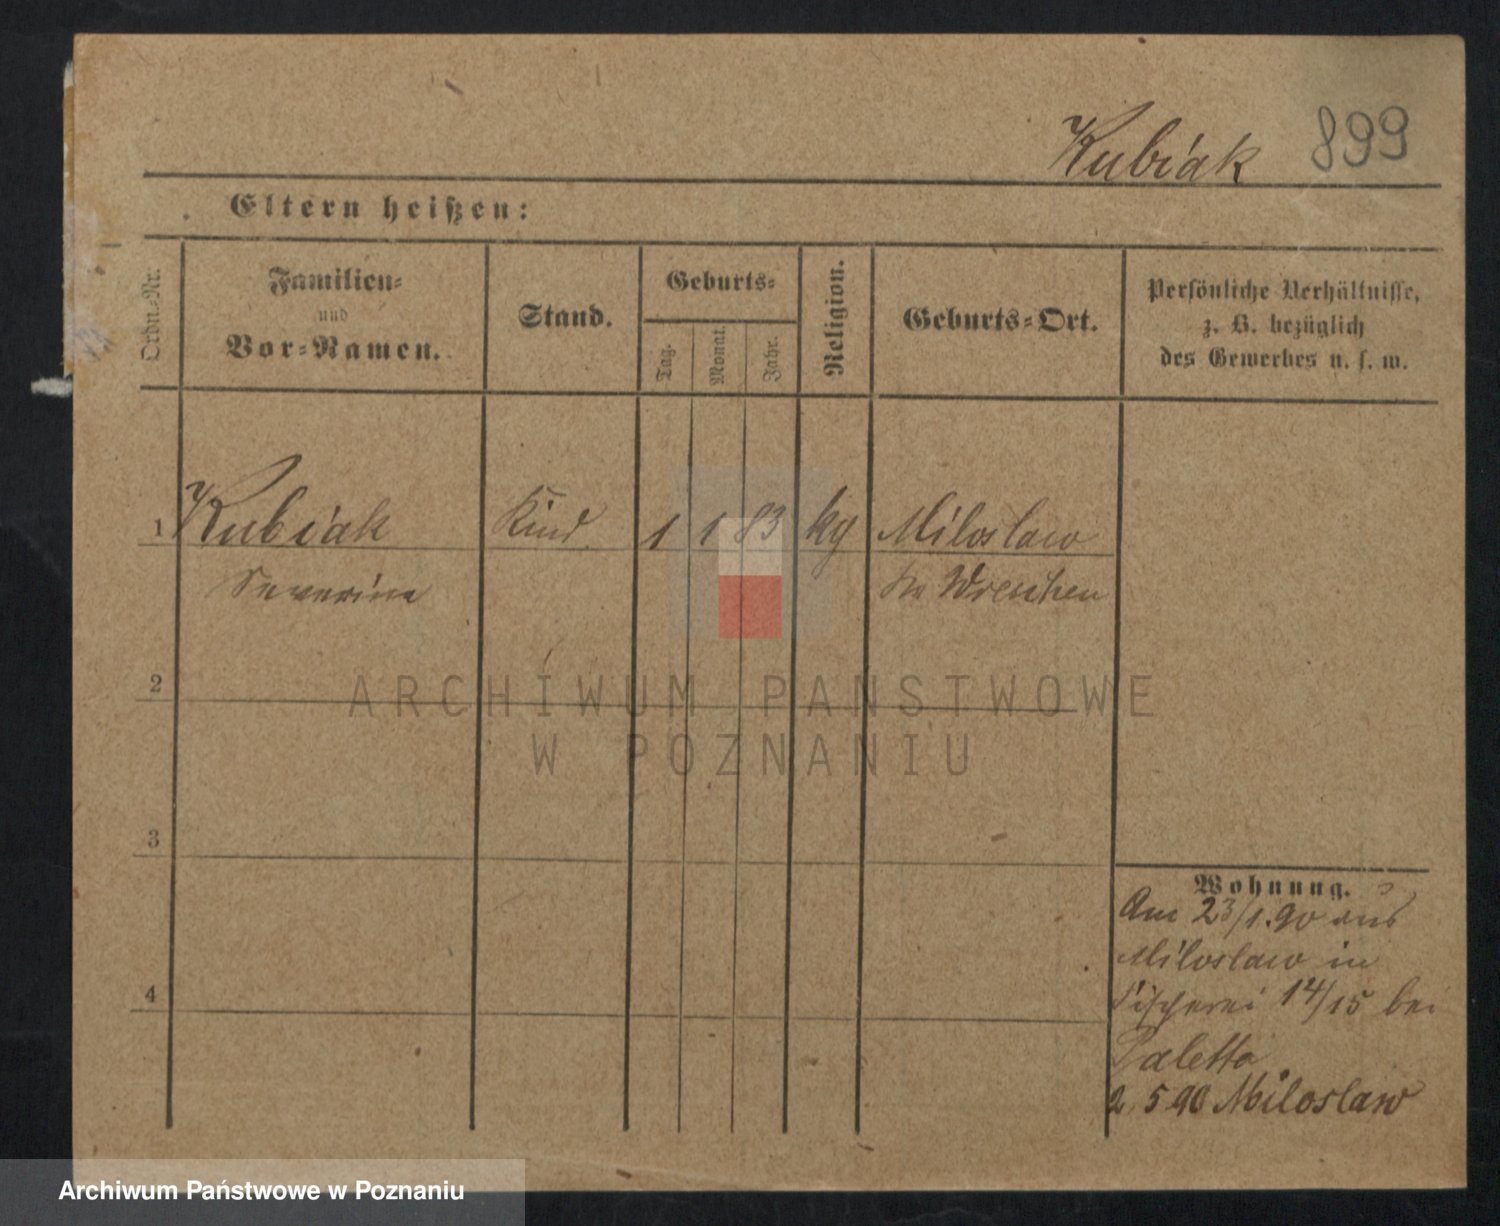 Kubiak 899
Eltern heißen:
Ordn.-Nr.
Familien-
und
Vor-Namen.
Stand.
Geburts-
Tag.
Monat.
Jahr.
Religion.
Geburts-Ort.
Persönliche Verhältnisse,
z. B. bezüglich
des Gewerbes u. s. w.
1 Kubiak Kind 1 1 83 kg Miloslaw
Severine Kr Wreschen
2
3
4
Wohnung.
Am 23/1.90 aus
Miloslaw in
Fischerei 14/15 bei
2. 5 90 Miloslaw
ARCHIWUM PAŃSTWOWE
W POZNANIU
Archiwum Państwowe w Poznaniu